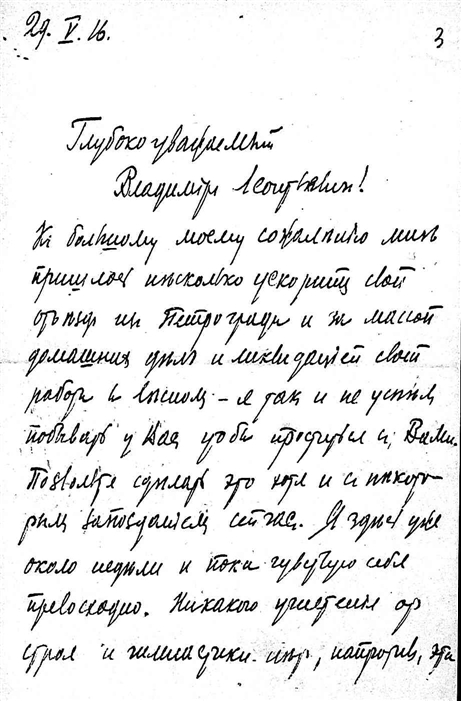 29. V. 16.
3
Глубокоуважаемый
Владимір Леонтьевич!
Къ большому моему сожалѣнію мнѣ
пришлось нѣсколько ускорить свой
отъѣздъ изъ Петрограда и за массой
домашнихъ дѣлъ и ликвидаціей своей
работы въ – я такъ и не успѣлъ
побывать у Васъ чтобы проститься съ Вами.
Позвольте сдѣлать это хотя и съ нѣкото-
рымъ запозданіемъ сейчас. Я здѣсь уже
около недѣли и пока чувствую себя
превосходно. Никакого угнетенія от
строя и гимнастики нѣтъ, напротив, эти